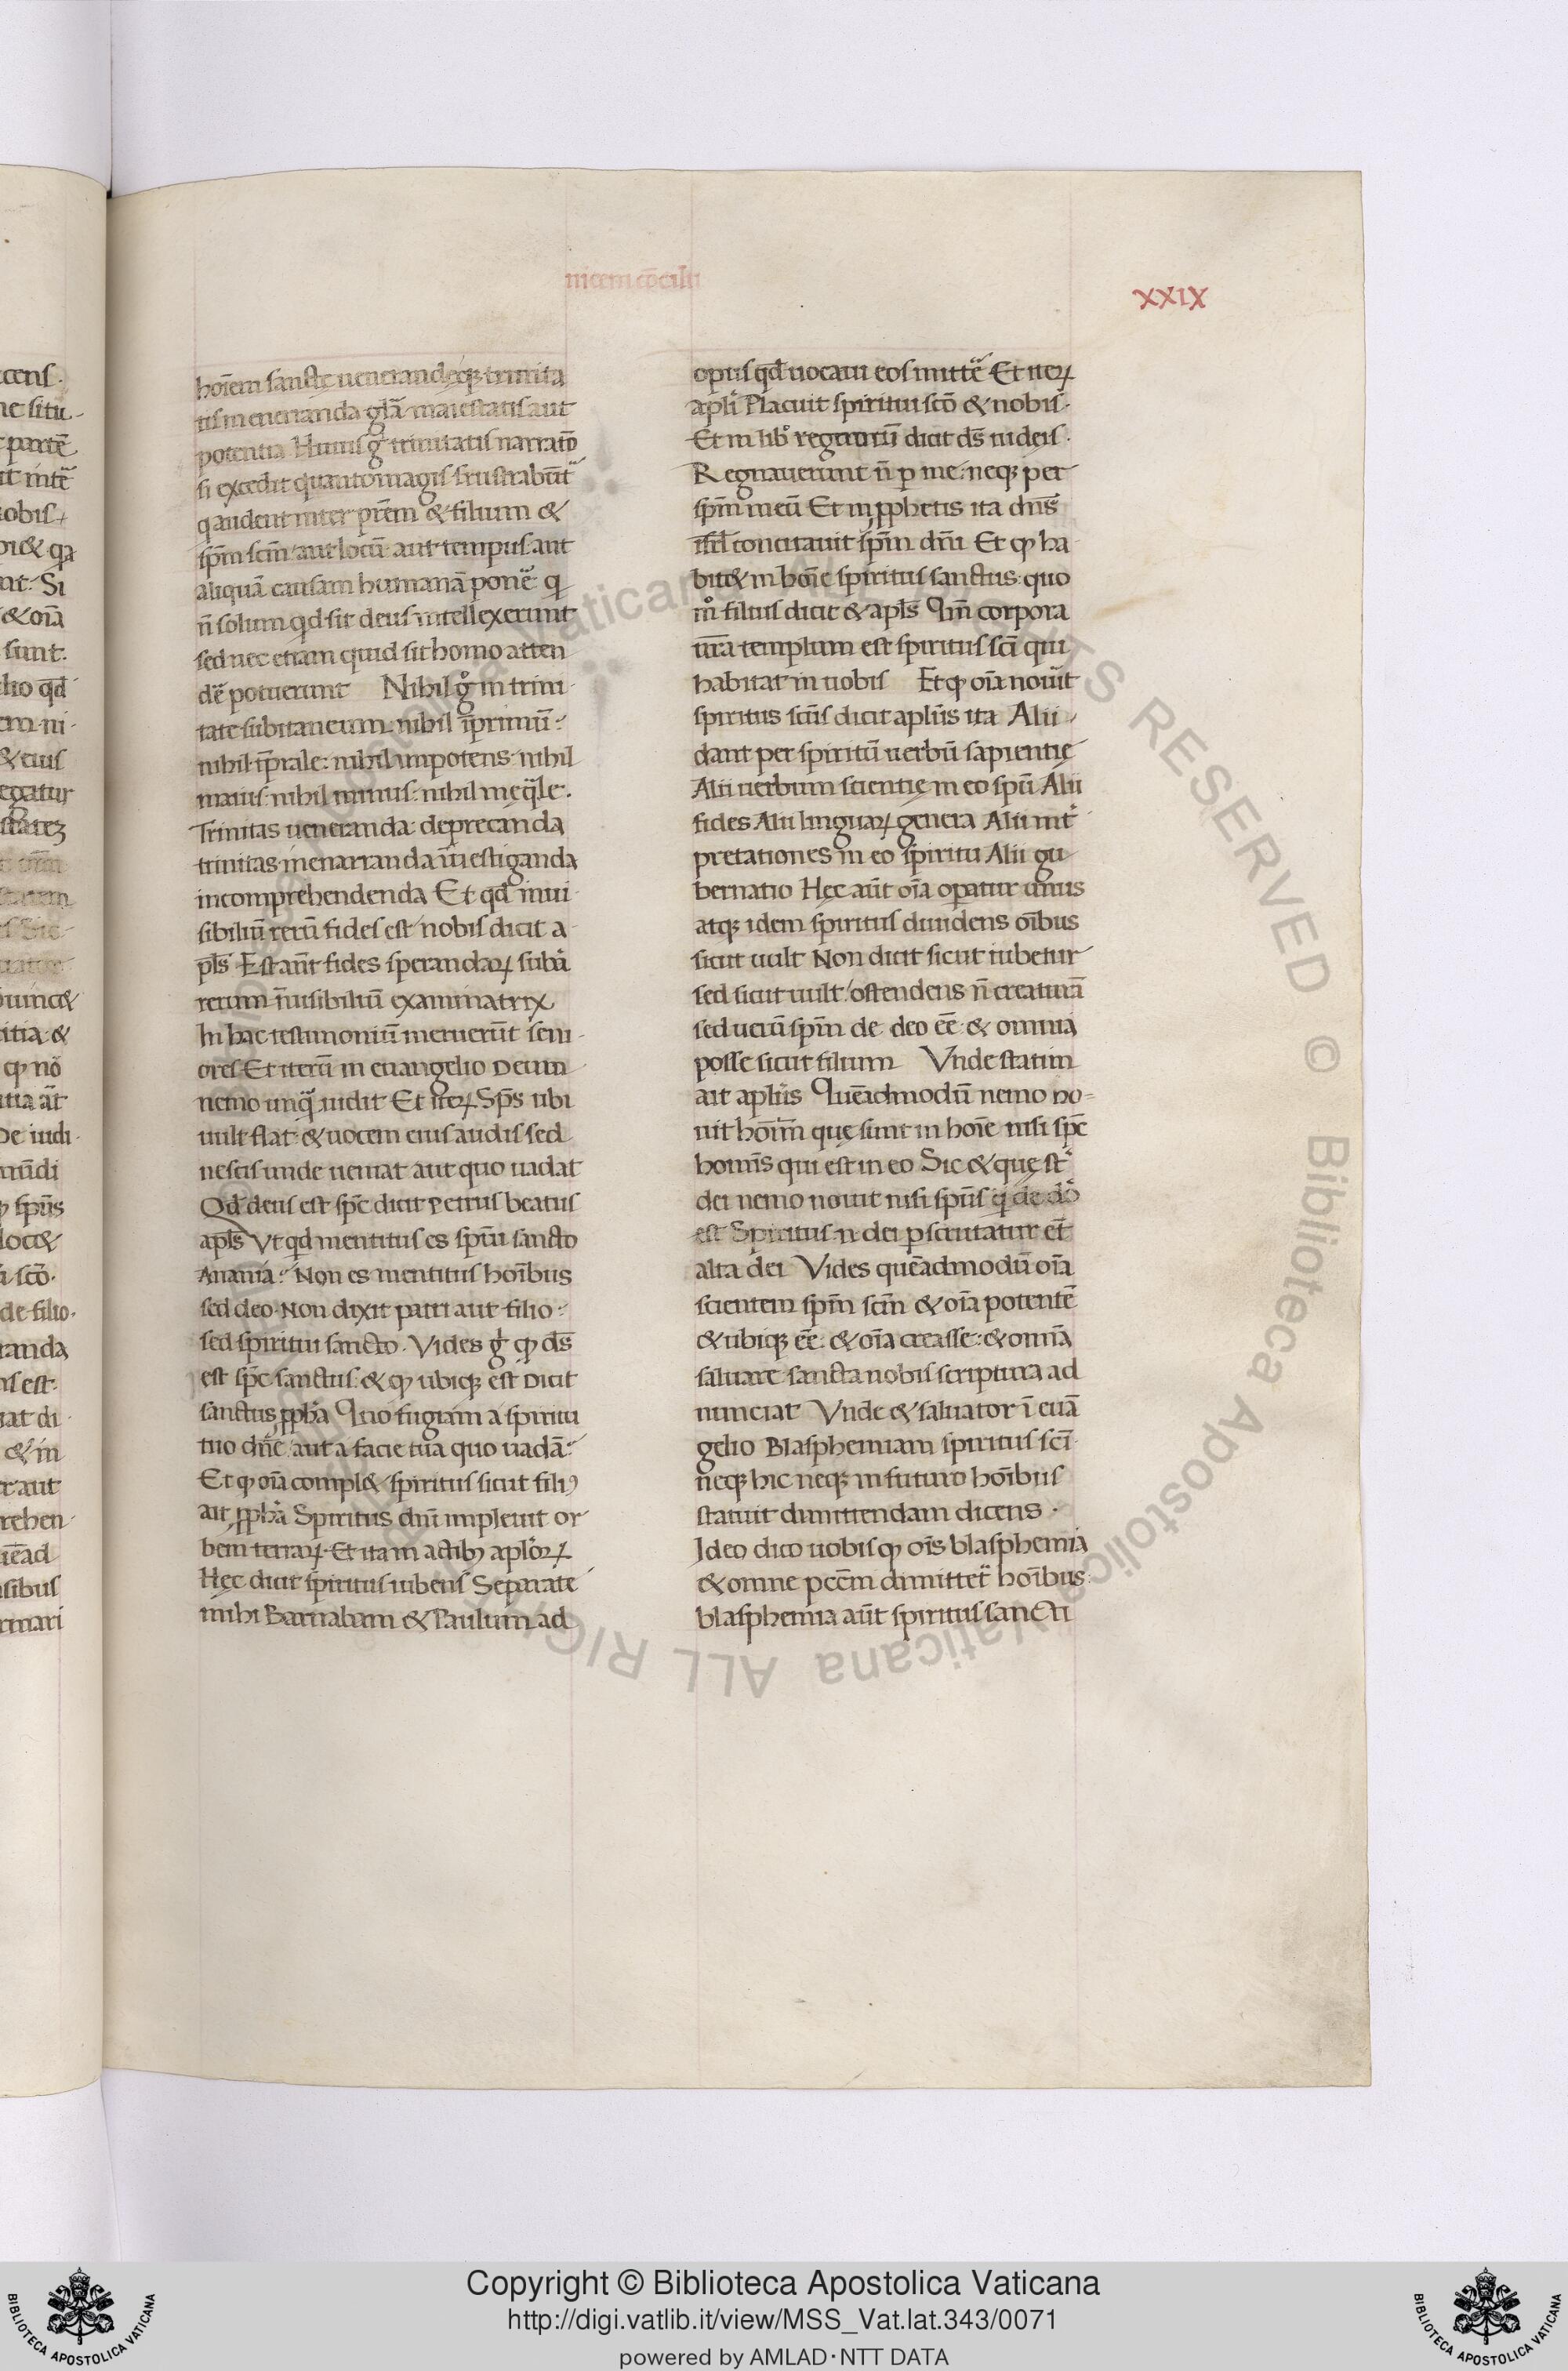 niceni cōcilii
XXIX
hoīem sanctę uenerandęq; trinita
tis inenarranda gl̄a maiestatis aut
potentia Huius g̊ trinitatis narratō
si excedit quanto magis frustrabunt᷑
q audent inter pr̄em & filium &
sp̄m scm̄ aut locū aut tempus aut
aliquā causam humanā pone᷑ qı
n̄ solum qd sit deus intellexerunt
sed nec etiam quid sit homo atten
de᷑ potuerunt Nihil g̊ in trini
tate subitaneum nihil īprimū:
nihil t̄prale: nihil inpotens: nihil
maius: nihil minus: nihil ineq̄le.
Trinitas ueneranda: deprecanda
trinitas inenarranda īuestiganda
incomprehendenda Et qđ inui
sibiliū rerū fides est nobis dicit a
pl̄s Est aūt fides sperandaꝝ subā
rerum īuisibiliū examinatrix
In hac testimoniū meruerūt seni
ores Et iterū in euangelio Deum
nemo unq̄ uidit Et iteꝝ Sp̄s ubi
uult flat & uocem eius audis sed
nescis unde ueniat aut quo uadat
Qđ deus est sp̄c dicit Petrus beatus
apl̄s Vt qđ mentitus es spūi sancto
Anania: Non es mentitus hoībus
sed deo. Non dixit patri aut filio:
sed spiritui sancto. Vides g̊ qꝫ ds̄
est sp̄c sanctus: & qꝫ ubiq; est Dicit
sanctus ꝓpha Quo fugiam a spiritu
tuo dn̄e aut a facie tua quo uadā:
Et qꝫ oīa compl& spiritus sicut fili9
ait ꝓpha Spiritus dn̄i impleuit or
bem terraꝝ. Et ita in actibꝫ aploꝝ
Hęc dicit spiritus iubens Separate
mihi Barnabam & Paulum ad
opus qđ uocaui eos mitte᷑ Et iteꝝ
apli Placuit spiritui scō & nobis.
Et in libr̊ regnorū dicit ds̄ iudeis.
Regnauerunt n̄ ꝑ me: neq; per
sp̄m meū Et in ꝓphetis ita dn̄s
isrl̄ concitauit sp̄m dn̄i Et qꝫ ha
bit& in hoīe spiritus sanctus: quo
m̊ filius dicit & apl̄s Qm̄ corpora
ur̄a templum est spiritus scī qui
habitat in uobis Et qꝫ oīa nouit
spiritus scūs dicit aplūs ita Alii
dant per spiritū uerbū sapientię
Alii uerbum scientię in eo spū Alii
fides Alii linguaꝝ genera Alii int᷑
pretationes in eo spiritu Alii gu
bernatio Hęc aūt oīa opatur unus
atq; idem spiritus diuidens oībus
sicut uult Non dicit sicut iubetur
sed sicut uult ostendens n̄ creaturā
sed ueru sp̄m de deo eē & omnia
posse sicut filium Vnde statim
ait aplūs Quēadmodū nemo no-
uit hoīm que sunt in hoīe nisi sp̄c
homīs qui est in eo Sic & quę st᷑
dei nemo nouit nisi spūs q̇ de dō
est Spiritus n̄ dei ꝑscrutatur et̄
alta dei Vides quēadmodū oīa
scientem sp̄m scm̄ & oīa potentē
& ubiq; eē: & oīa creasse: & omīa
saluare sancta nobis scriptura ad
nunciat Vnde & saluator ī euā
gelio Blasphemiam spiritus scī
neq; hic neq; in futuro hoībus
statuit dimittendam dicens.
Ideo dico uobis qꝫ oīs blasphemia
& omne pccm̄ dimittet᷑ hoībus
blasphemia aūt spiritus sancti
Copyright © Biblioteca Apostolica Vaticana
http://digi.vatlib.it/view/MSS_Vat.lat.343/0071
powered by AMLAD·NTT DATA